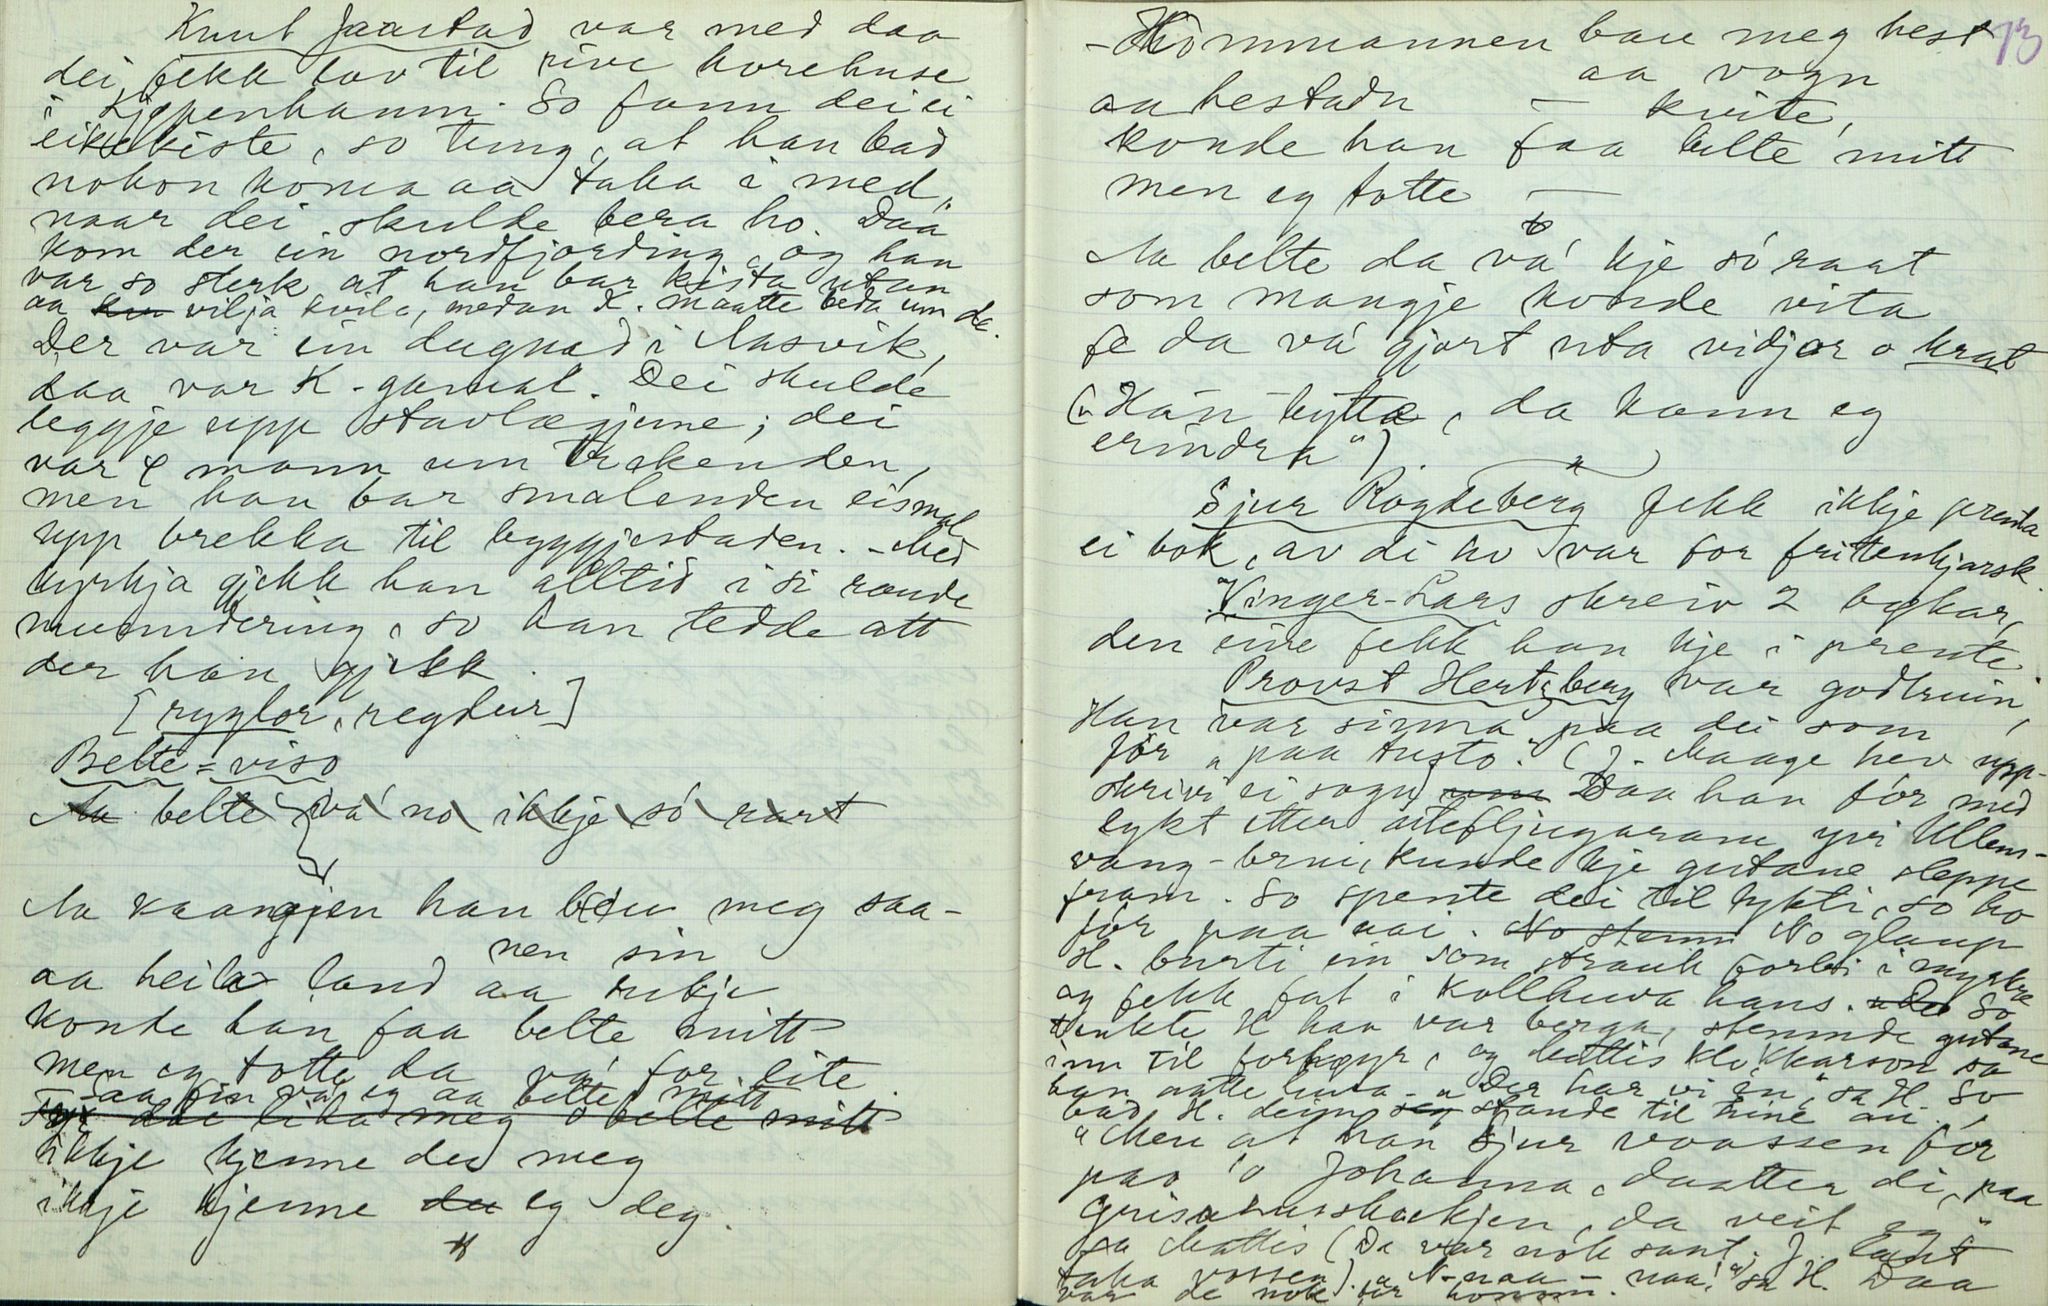 Knut Jaastad var med daa
dei fekk lov til rive horehuse
i Kjøpenhamn. So fann dei ei
eikekiste, so tung, at han bad
nokon koma aa taka i med,
naar dei skulde bera ho. Daa
kom der ein nordfjording, og han
var so sterk at han bar kista utan
aa vilja kvila, medan K. maatte beda um de.
Der var ein dugnad i Aasvik,
daa var K. gamal. Dei skulde
leggje upp stavlægjene; dei
var mann um enden,
men han bar smalenden eismal
upp brekka til byggjestaden. – Med
kyrkja gjekk han alltid i si raude
mundering, so han tedde att
der han gjekk.
[ryglor, regdur]
Belte-viso
Aa belte va' no ikkje só rart
Aa kaangjen han meg saa-
nen sin
aa heila land aa rikje
konde han faa belte mitt
men eg totte da va' for lite.
aa fin va' eg aa belte mitt
lika meg o belte mitt
ikkje kjenne du meg
ikkje kjenne du eg deg.
13
– mannen bau meg hest
aa vogn
aa hestadn – kvite,
konde han faa belte mitt
men eg totte –
Aa belte da va' kje só raat
som mangje konde vita
fe da va' gjort uta vidjor o krat
("Hán bytta, da kann eg
erindra").
Sjur Rogdeberg fekk ikkje prenta
ei bok, av di ho var for fritenkjarsk.
Vinger-Lars skreiv 2 bøkar,
den eine fekk han kje i prente
Provst Hertzberg var godtruin,
Han var sinna paa dei som
fór "paa tusto". (J. Maage hev upp-
skrive ei sogn) Daa han fór med
lykt etter utefljugarane yvi Ullens-
vang-brui, kunde kje gutane sleppe
fram. So spente dei til lykti, so ho
fór paa aai. No glaup
H. burti ein som strauk forbi i myrkre
og fekk fat i kollhuva hans. So
tenkte H han var berga, stemnde gutane
inn til forhøyr, og Mattis Klokkarson sa
han aatte huva. "Der har vi en," sa H. So
bad H. denn stande til sine
"Men at han Sjur vaassen fór
paa 'o Johanna, daatter di, paa
Grisahusshækjen, da veit eg"
sa Mattis (De var nok sant; J. laut
taka vossen). "N-naa – naa!" sa H. Daa
var de nok fyr honom.